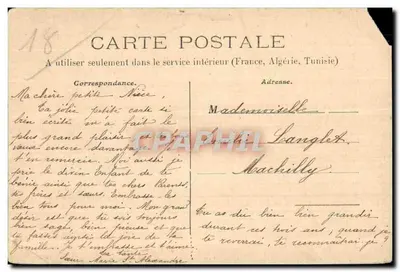 18
CARTE POSTALE
A utiliser seulement dans le service intérieur (France, Algérie, Tunisie)
Correspondance.
Adresse.
Ma chère petite Nièce,
Ta jolie petite carte si
bien écrite m'a fait le
plus grand plaisir
encore davantage
t'en remercie. Moi aussi je
prie le divin Enfant de te
bénir ainsi que tes chers Parents,
tes frères et sœurs. Embrasse-les
bien tous pour moi. Mon grand
désir est que tu sois toujours
bien sage, bien pieuse et que
tu fasses ainsi la joie de ta
famille. Je t'embrasse et t'aime
ta tante
Sœur Marie St Alexandre
Mademoiselle
Langlet
Machilly
Tu as dû bien bien grandir
durant ces trois ans, quand je
te reverrai, te reconnaitrai-je ?
CPARHIL